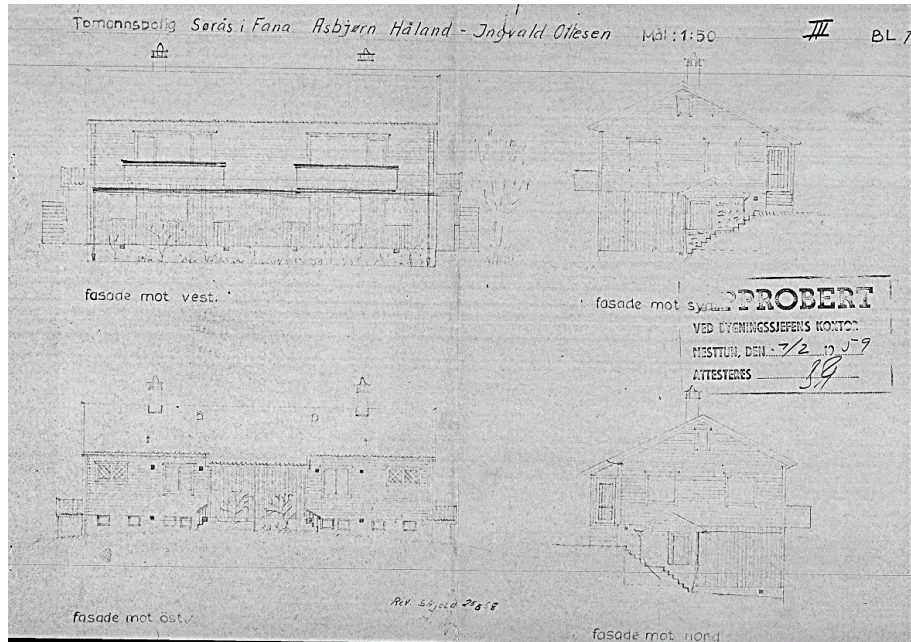 Tomannsbolig Sørås i Fana Asbjørn Håland - Ingvald Ottesen Mål: 1:50 III BL 1
fasade mot vest.
fasade mot syd
APPROBERT
VED BYGNINGSSJEFENS KONTOR
NESTTUN, DEN 7/2 1959
ATTESTERES
fasade mot öst.
Rev. Skjold 58
fasade mot nord